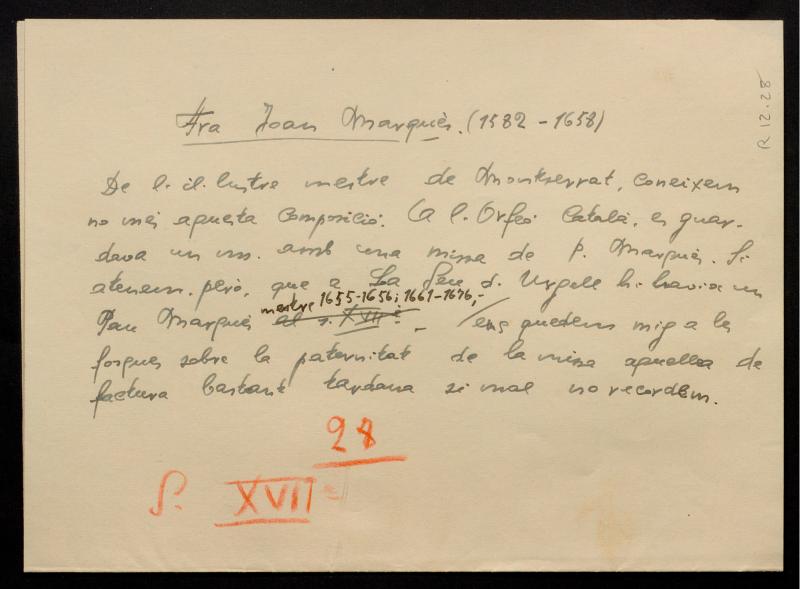 R 12.28
Fra Joan Marquès. (1582 - 1658)
De l. il. lustre mestre de Montserrat, coneixem
no més aquesta composició. (A l. Orfeó Català, es guar-
dava un ms. amb una missa de P. Marquès. Si
atenem, però, que a La Seu d. Urgell hi havia un
mestre 1655-1656; 1661-1676,-
Pau Marquès al s. XVII è. - ens quedem mig a les
fosques sobre la paternitat de la missa aquella de
factura bastant tardana si mal no recordem.
28
S. XVII